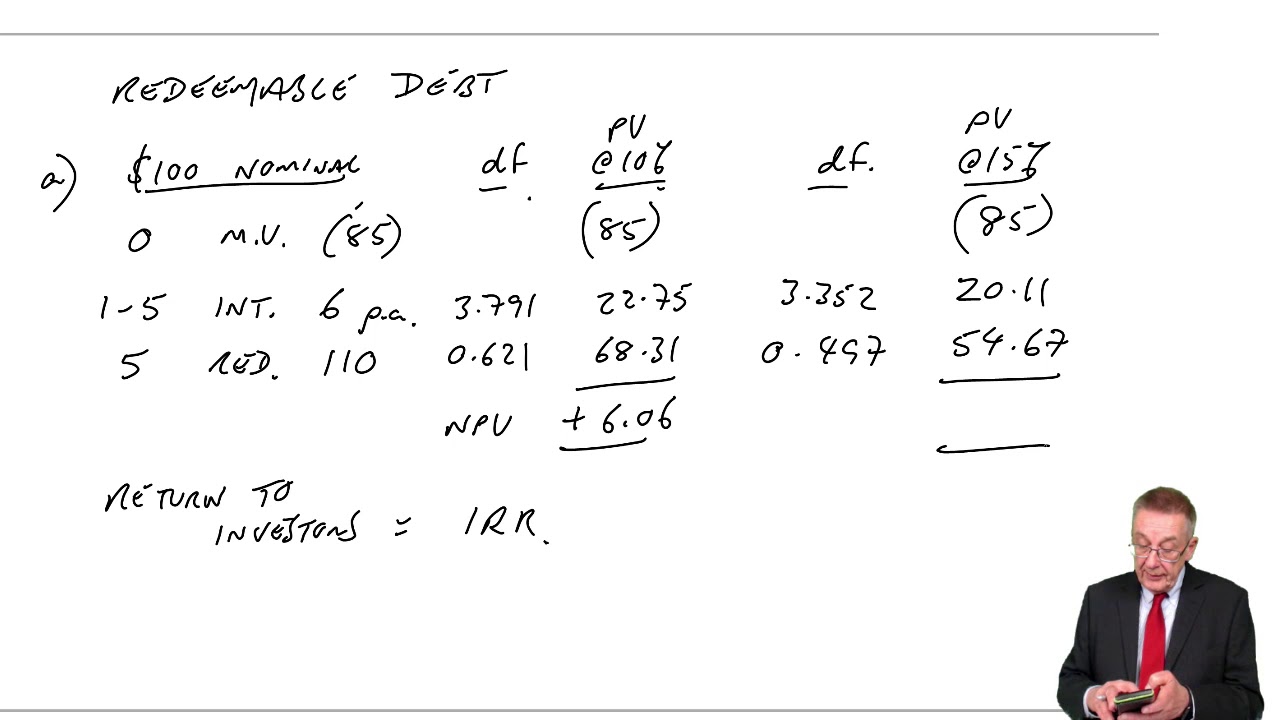 REDEEMABLE DEBT
PV PV
a) $100 NOMINAL df @10% df. @15%
0 M.V. (85) (85) (85)
1-5 INT. 6 p.a. 3.791 22.75 3.352 20.11
5 RED. 110 0.621 68.31 0.497 54.67
NPV + 6.06
RETURN TO
INVESTORS = IRR.